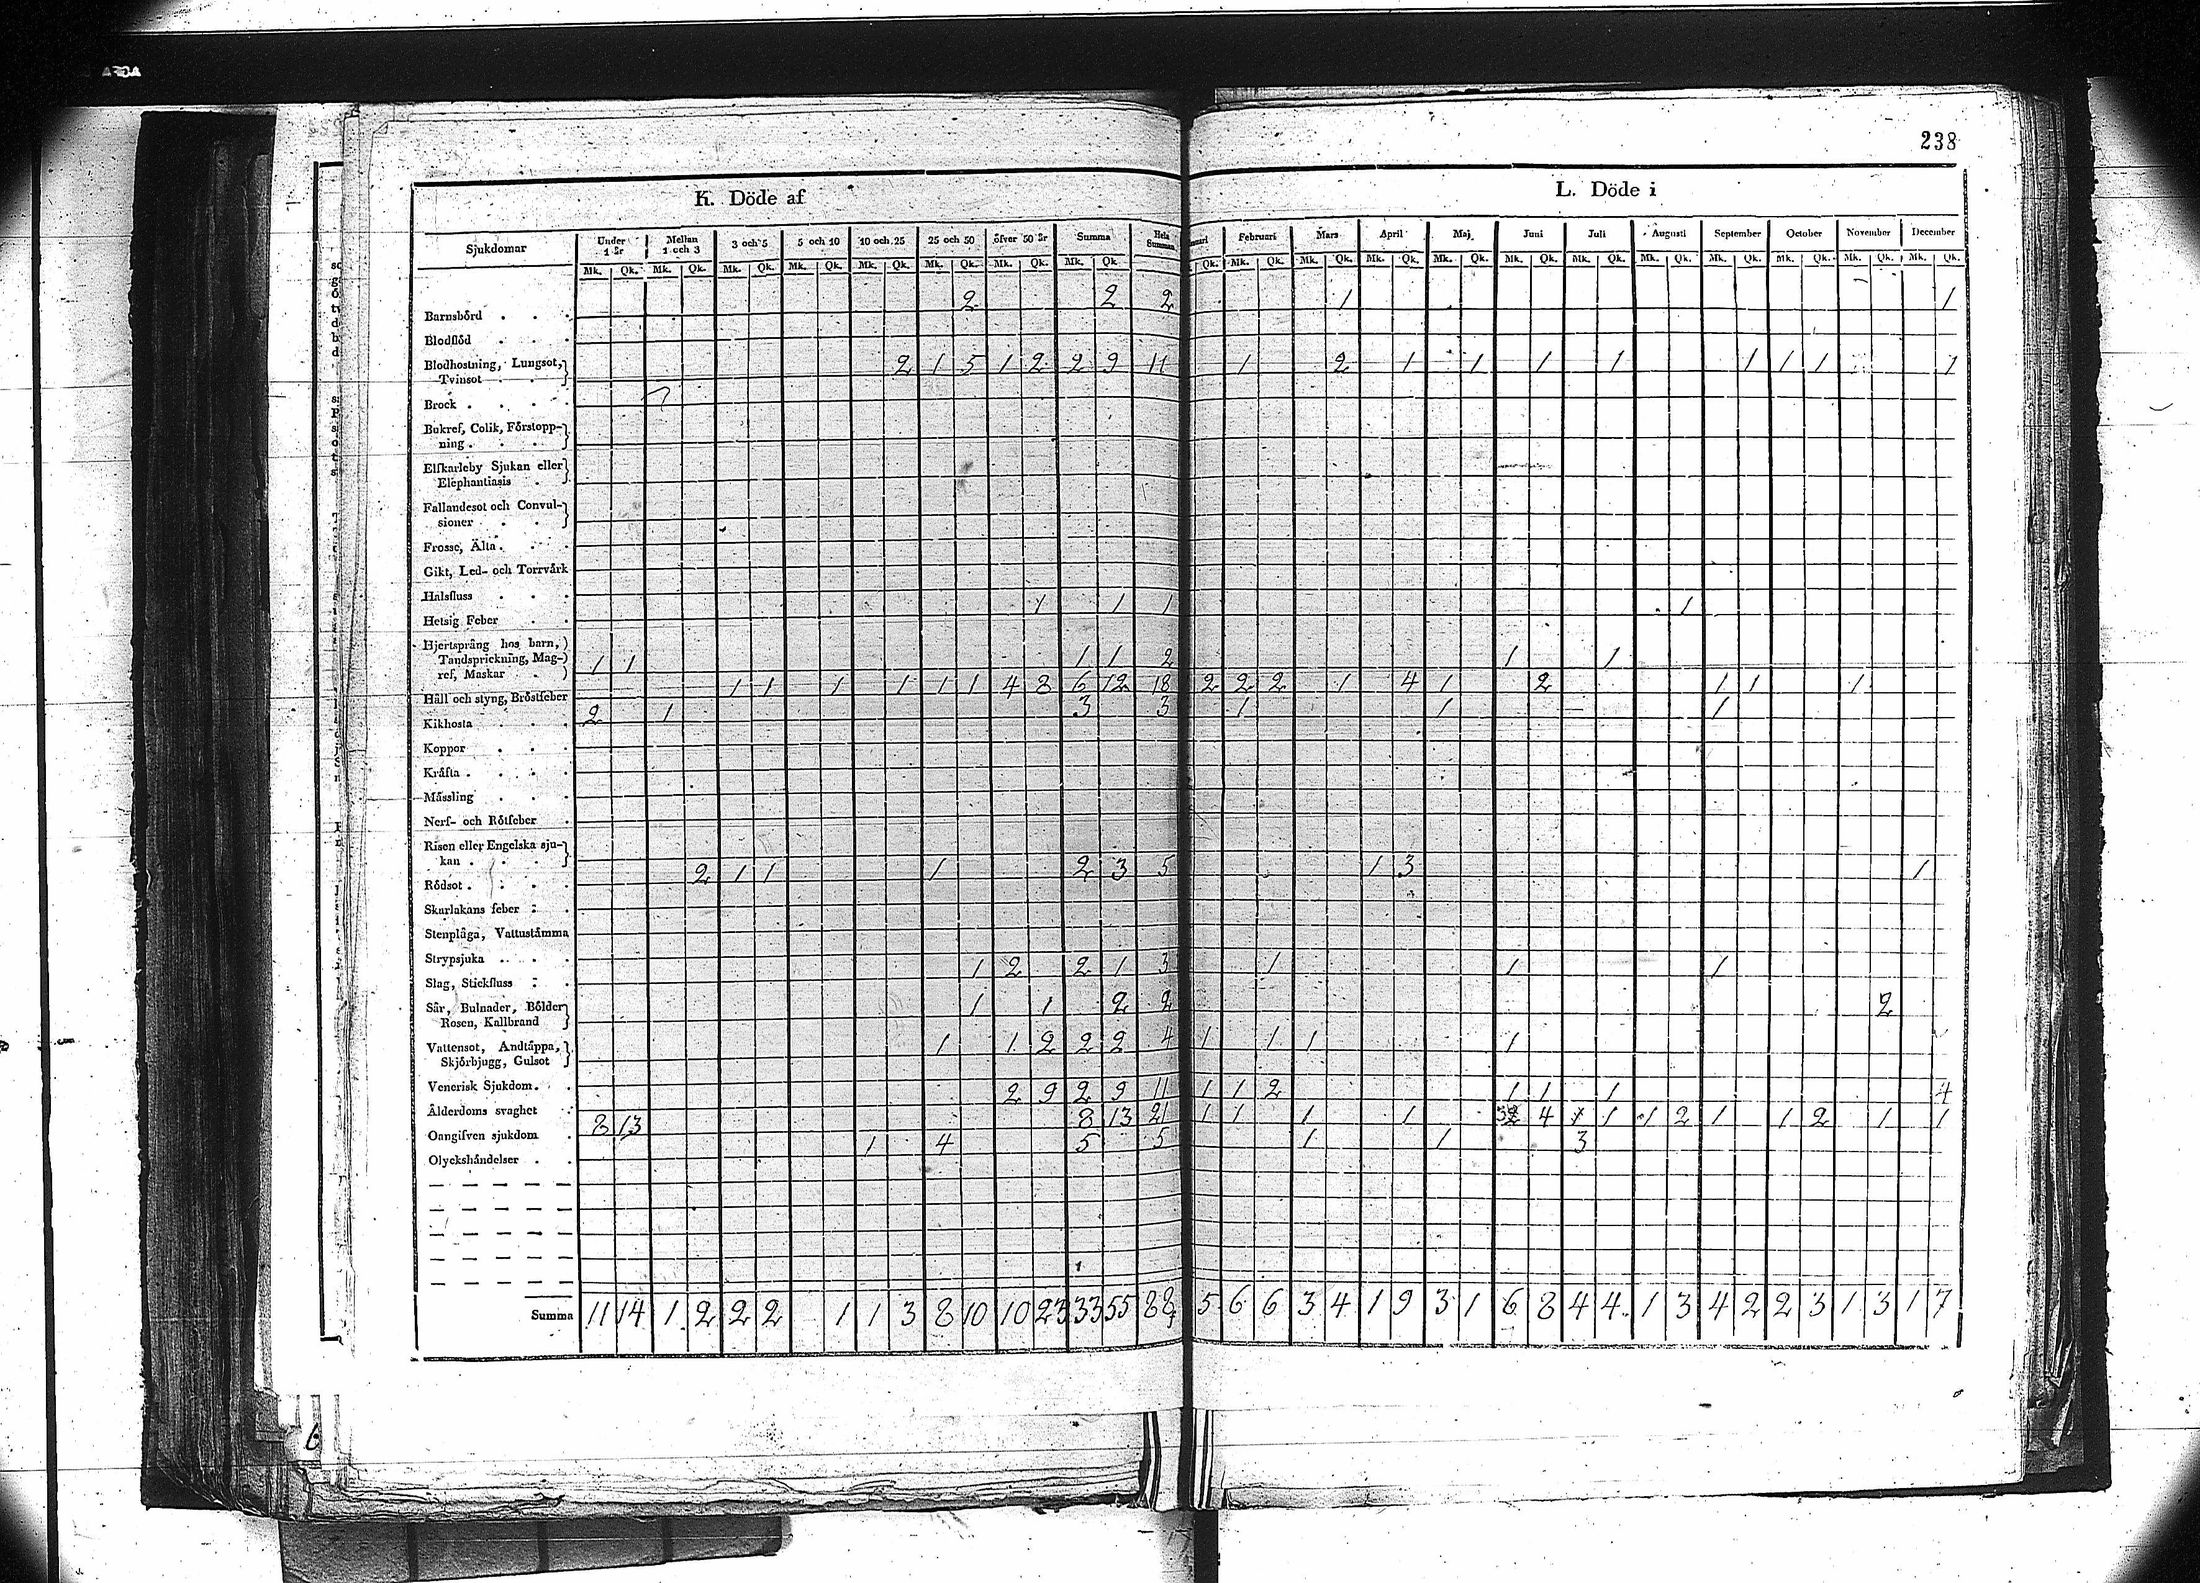 238
K. Döde af
L. Döde i
Sjukdomar Under 1 år Mellan 1 och 3 3 och 5 5 och 10 10 och 25 25 och 50 öfver 50 år Summa Hela Summan Februari Mars April Maj Juni Juli Augusti September October November December
Mk. Qk. Mk. Qk. Mk. Qk. Mk. Qk. Mk. Qk. Mk. Qk. Mk. Qk. Mk. Qk. Qk. Mk. Qk. Mk. Qk. Mk. Qk. Mk. Qk. Mk. Qk. Mk. Qk. Mk. Qk. Mk. Qk. Mk. Qk. Mk. Qk. Mk. Qk.
Barnsbörd . . . 2 2 2 1 1
Blodflöd . . .
Blodhostning, Lungsot,
Tvinsot . . . 2 1 5 1 2 2 9 11 1 2 1 1 1 1 1 1 1 1
Brock . . . .
Bukref, Colik, Förstopp-
ning . . .
Elfkarleby Sjukan eller
Elephantiasis .
Fallandesot och Convul-
sioner . .
Frosse, Älta . . .
Gikt, Led- och Torrvärk
Halsfluss . . .
Hetsig Feber . . 1 1 1 1
Hjertsprång hos barn,
Tandsprickning, Mag-
ref, Maskar . 1 1 1 1 2 1 1
Håll och styng, Bröstfeber 1 1 1 1 1 1 4 8 6 12 18 2 2 2 1 4 1 2 1 1 1
Kikhosta . . . 2 1 3 3 1 1 1
Koppor . . .
Kräfta . . . .
Mässling . . .
Nerf- och Rötfeber .
Risen eller Engelska sju-
kan . . .
Rödsot . . . . 2 1 1 1 2 3 5 1 3 1
Skarlakans feber . .
Stenplåga, Vattustämma
Strypsjuka . . .
Slag, Stickfluss . . 1 2 2 1 3 1 1 1
Sår, Bulnader, Bölder
Rosen, Kallbrand 1 1 2 2 2
Vattensot, Andtäppa,
Skjörbjugg, Gulsot 1 1 2 2 2 4 1 1 1 1
Venerisk Sjukdom . .
Ålderdoms svaghet . 2 9 2 9 11 1 1 2 1 1 1 4
Oangifven sjukdom . 8 13 8 13 21 1 1 1 1 4 1 1 2 1 1 2 1 1
Olyckshändelser . . 1 4 5 5 1 1 3
Summa 11 14 1 2 2 2 1 1 3 8 10 10 23 33 55 88 5 6 6 3 4 1 9 3 1 6 8 4 4 1 3 4 2 2 3 1 3 1 7